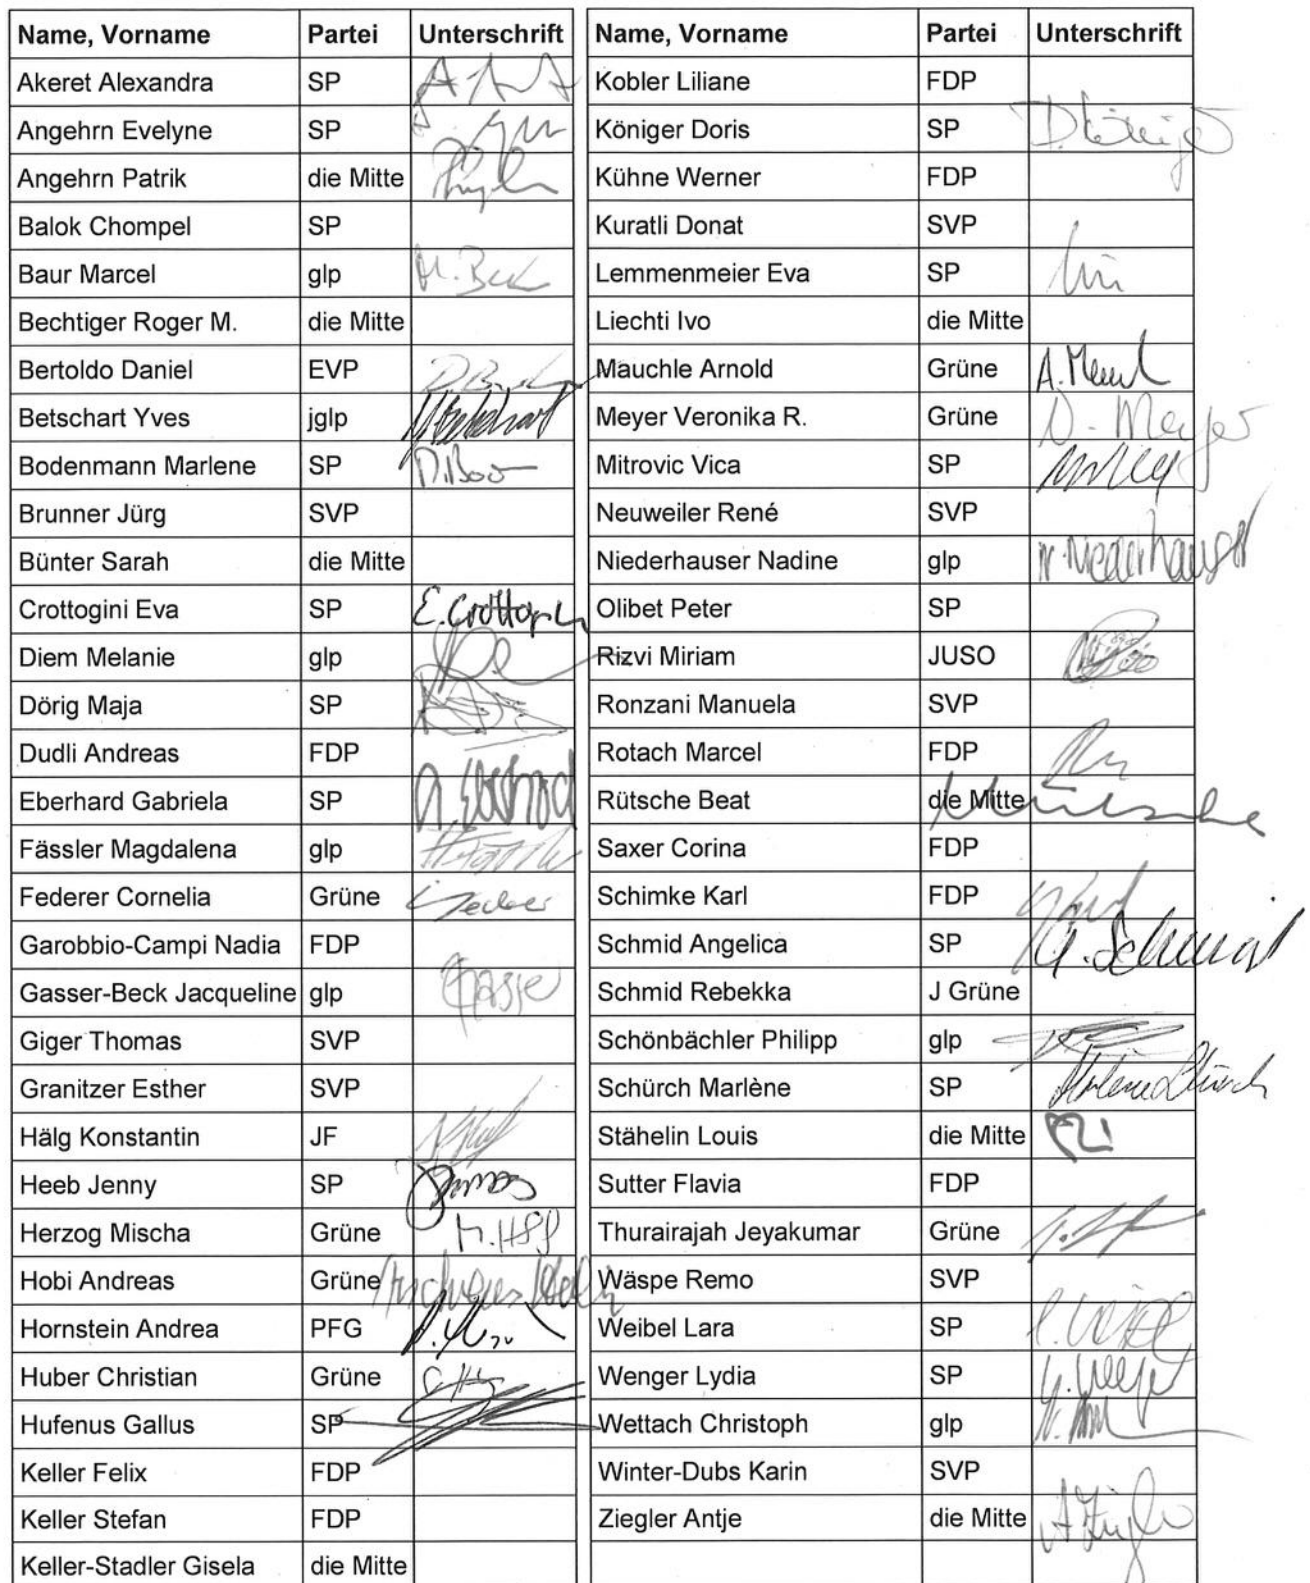 Name, Vorname Partei Unterschrift
Akeret Alexandra SP
Angehrn Evelyne SP
Angehrn Patrik die Mitte
Balok Chompel SP
Baur Marcel glp
Bechtiger Roger M. die Mitte
Bertoldo Daniel EVP
Betschart Yves jglp
Bodenmann Marlene SP
Brunner Jürg SVP
Bünter Sarah die Mitte
Crottogini Eva SP
Diem Melanie glp
Dörig Maja SP
Dudli Andreas FDP
Eberhard Gabriela SP
Fässler Magdalena glp
Federer Cornelia Grüne
Garobbio-Campi Nadia FDP
Gasser-Beck Jacqueline glp
Giger Thomas SVP
Granitzer Esther SVP
Hälg Konstantin JF
Heeb Jenny SP
Herzog Mischa Grüne
Hobi Andreas Grüne
Hornstein Andrea PFG
Huber Christian Grüne
Hufenus Gallus SP
Keller Felix FDP
Keller Stefan FDP
Keller-Stadler Gisela die Mitte
Name, Vorname Partei Unterschrift
Kobler Liliane FDP
Königer Doris SP
Kühne Werner FDP
Kuratli Donat SVP
Lemmenmeier Eva SP
Liechti Ivo die Mitte
Mauchle Arnold Grüne
Meyer Veronika R. Grüne
Mitrovic Vica SP
Neuweiler René SVP
Niederhauser Nadine glp
Olibet Peter SP
Rizvi Miriam JUSO
Ronzani Manuela SVP
Rotach Marcel FDP
Rütsche Beat die Mitte
Saxer Corina FDP
Schimke Karl FDP
Schmid Angelica SP
Schmid Rebekka J Grüne
Schönbächler Philipp glp
Schürch Marlène SP
Stähelin Louis die Mitte
Sutter Flavia FDP
Thurairajah Jeyakumar Grüne
Wäspe Remo SVP
Weibel Lara SP
Wenger Lydia SP
Wettach Christoph glp
Winter-Dubs Karin SVP
Ziegler Antje die Mitte